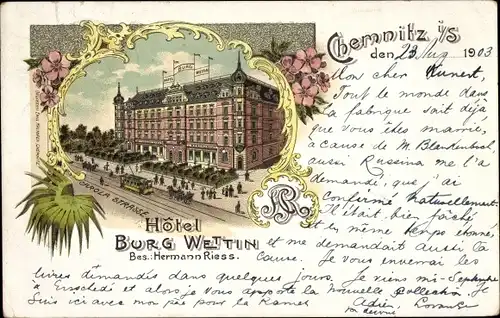 Chemnitz i/S
den 23 Aug 1903
Mon cher Kunert,
Tout le monde dans
la fabrique sait déjà
que vous êtes marié,
à cause de M. Blankenbuch,
aussi Russina me l'a
demandé, que j'ai
confirmé naturellement.
Il était bien fâché
et en même temps étonné,
et me demandait aussi la
cause. Je vous enverrai les
livres demandés dans quelques jours. Je viens mi-Septembre
à Enschedé et alors je vous apporte la nouvelle collection. Je
suis ici avec mon pour la
Adrien
BURG WETTIN
GEORGEN STRASSE
HR
Hôtel
BURG WETTIN
Bes.: Hermann Riess.